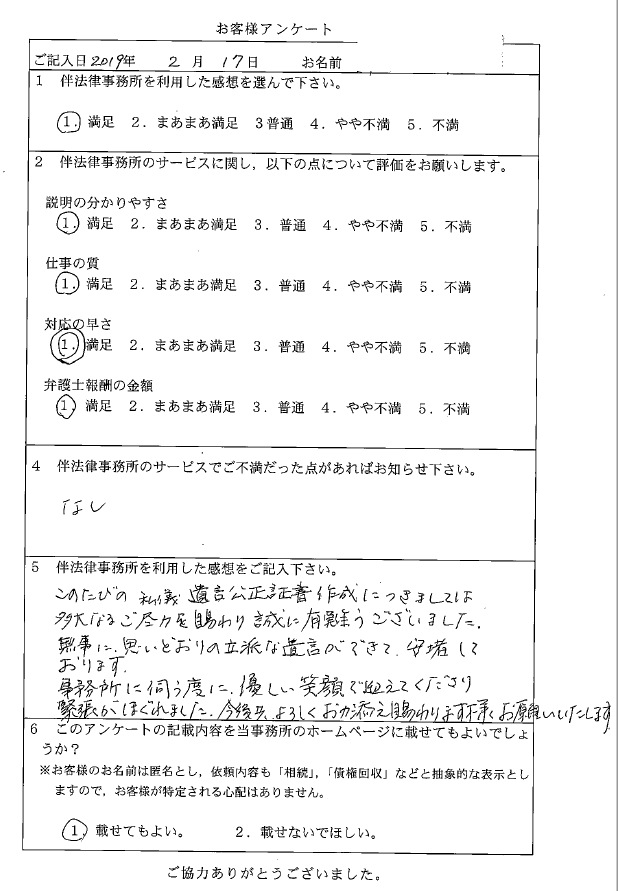 お客様アンケート
ご記入日2019年 2月17日 お名前
1 伴法律事務所を利用した感想を選んで下さい。
1．満足 2．まあまあ満足 3普通 4．やや不満 5．不満
2 伴法律事務所のサービスに関し，以下の点について評価をお願いします。
説明の分かりやすさ
1．満足 2．まあまあ満足 3．普通 4．やや不満 5．不満
仕事の質
1．満足 2．まあまあ満足 3．普通 4．やや不満 5．不満
対応の早さ
1．満足 2．まあまあ満足 3．普通 4．やや不満 5．不満
弁護士報酬の金額
1．満足 2．まあまあ満足 3．普通 4．やや不満 5．不満
4 伴法律事務所のサービスでご不満だった点があればお知らせ下さい。
なし
5 伴法律事務所を利用した感想をご記入下さい。
このたびの 私儀 遺言公正証書作成につきましては
多大なるご尽力を賜わり誠に有難うございました。
無事に、思いどおりの立派な遺言ができて、安堵して
おります。
事務所に伺う度に、優しい笑顔で迎えてくださり
緊張がほぐれました。今後共、よろしくお力添え賜わります様、お願いいたします
6 このアンケートの記載内容を当事務所のホームページに載せてもよいでしょ
うか？
※お客様のお名前は匿名とし，依頼内容も「相続」，「債権回収」などと抽象的な表示とし
ますので，お客様が特定される心配はありません。
1 載せてもよい。 2．載せないでほしい。
ご協力ありがとうございました。